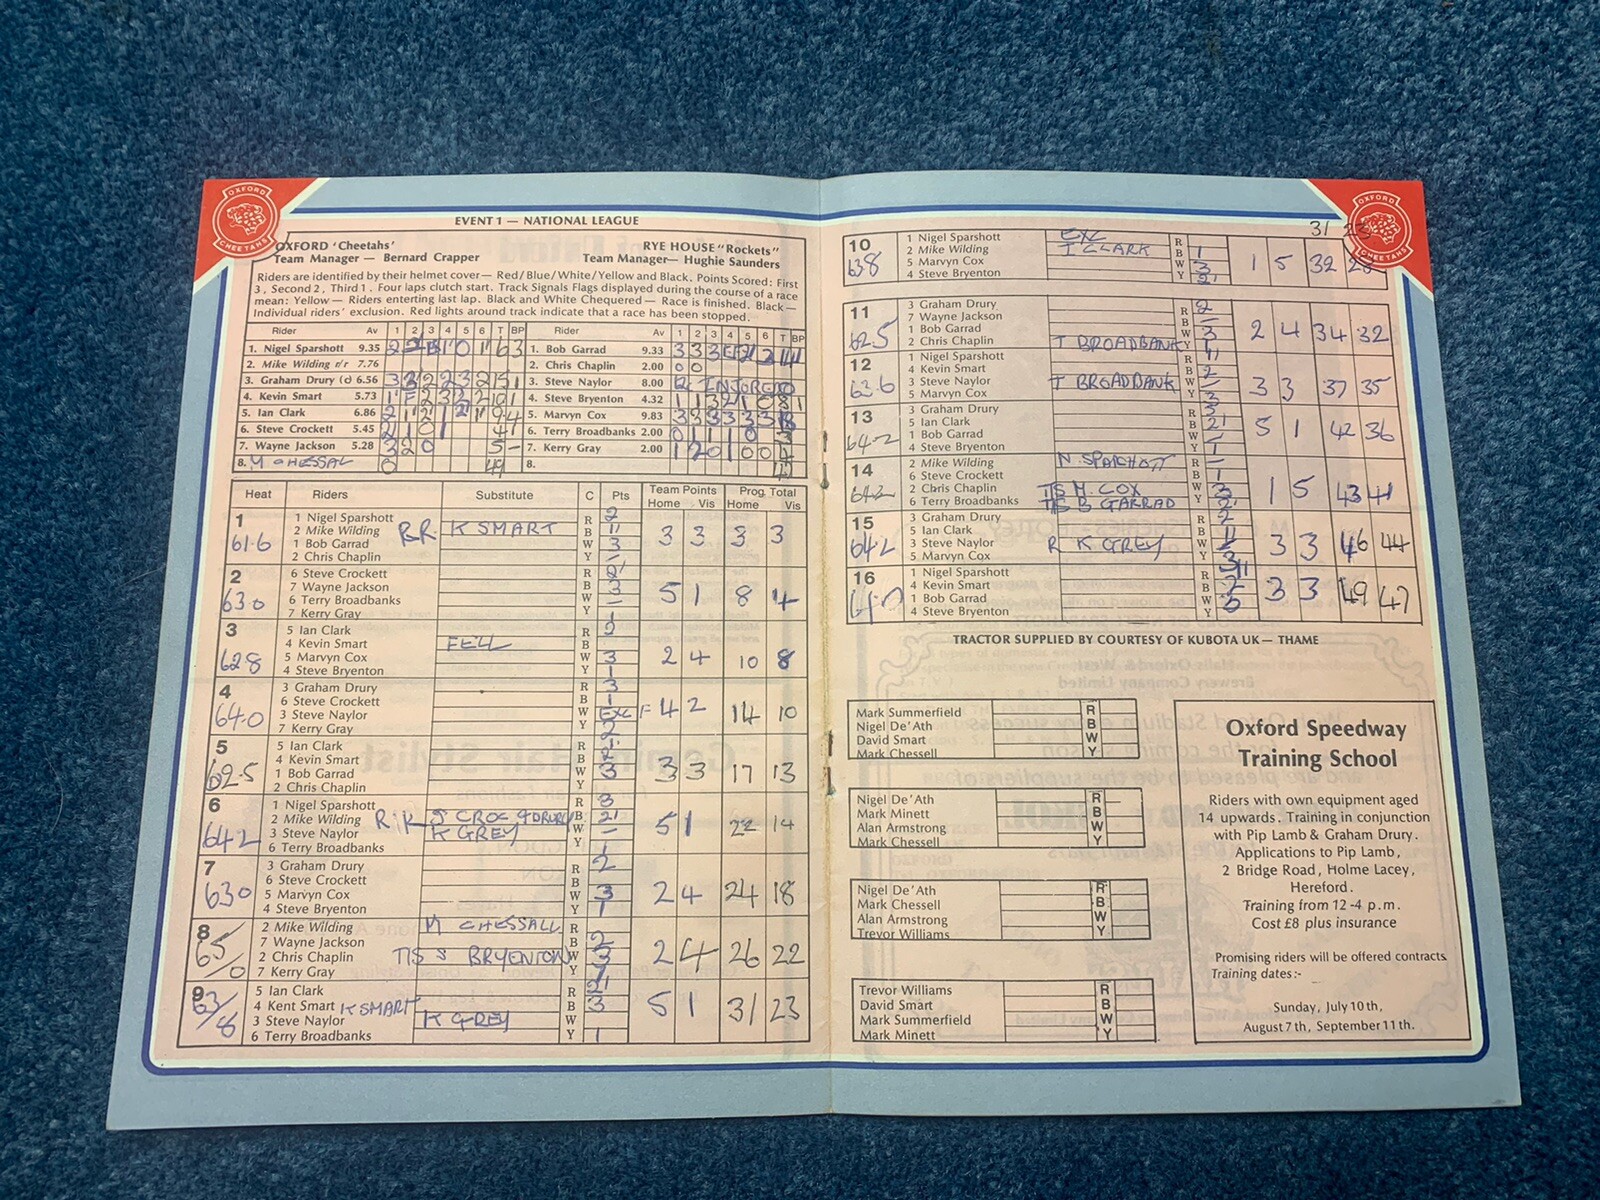 OXFORD
CHEETAHS
EVENT 1 — NATIONAL LEAGUE
OXFORD 'Cheetahs' RYE HOUSE "Rockets"
Team Manager — Bernard Crapper Team Manager— Hughie Saunders
Riders are identified by their helmet cover— Red/Blue/White/Yellow and Black. Points Scored: First
3, Second 2, Third 1. Four laps clutch start. Track Signals Flags displayed during the course of a race
mean: Yellow— Riders entering last lap. Black and White Chequered— Race is finished. Black—
Individual riders' exclusion. Red lights around track indicate that a race has been stopped.
Rider Av 1 2 3 4 5 6 T BP Rider Av 1 2 3 4 5 6 T BP
1. Nigel Sparshott 9.35 1. Bob Garrad 9.33
2. Mike Wilding r/r 7.76 2. Chris Chaplin 2.00 0 0
3. Graham Drury (c) 6.56 3. Steve Naylor 8.00
4. Kevin Smart 5.73 4. Steve Bryenton 4.32
5. Ian Clark 6.86 5. Marvyn Cox 9.83
6. Steve Crockett 5.45 6. Terry Broadbanks 2.00
7. Wayne Jackson 5.28 3 2 0 5 - 7. Kerry Gray 2.00
8. M CHESSAL 0 8.
Heat Riders Substitute C Pts Team Points Prog. Total
Home Vis Home Vis
1 1 Nigel Sparshott R 2
2 Mike Wilding RR K SMART B
61.6 1 Bob Garrad W 3 3 3 3 3
2 Chris Chaplin Y —
2 6 Steve Crockett R
7 Wayne Jackson B 3
63.0 6 Terry Broadbanks W — 5 1 8 4
7 Kerry Gray Y 1
3 5 Ian Clark R 2
4 Kevin Smart FELL B
62.8 5 Marvyn Cox W 3 2 4 10 8
4 Steve Bryenton Y 1
4 3 Graham Drury R 3
6 Steve Crockett B 1
64.0 3 Steve Naylor W EXC F 4 2 14 10
7 Kerry Gray Y 2
5 5 Ian Clark R
4 Kevin Smart B
62.5 1 Bob Garrad W 3 3 3 17 13
2 Chris Chaplin Y
6 1 Nigel Sparshott R 3
2 Mike Wilding B 2'
64.2 3 Steve Naylor K GREY W — 5 1 22 14
6 Terry Broadbanks Y 1
7 3 Graham Drury R 2
6 Steve Crockett B
63.0 5 Marvyn Cox W 3 2 4 24 18
4 Steve Bryenton Y 1
8 2 Mike Wilding M CHESSALL R
7 Wayne Jackson B 2
65/0 2 Chris Chaplin T/S S BRYENTON W 3 2 4 26 22
7 Kerry Gray Y
9 5 Ian Clark R 2'
4 Kent Smart K SMART B 3
63/8 3 Steve Naylor K GREY W 5 1 31 23
6 Terry Broadbanks Y 1
OXFORD
CHEETAHS
31 23
10 1 Nigel Sparshott EXC R
2 Mike Wilding I CLARK B 1
63.8 5 Marvyn Cox W 3 1 5 32 28
4 Steve Bryenton Y 2'
11 3 Graham Drury R 2
7 Wayne Jackson B —
62.5 1 Bob Garrad W 3 2 4 34 32
2 Chris Chaplin T BROADBANK Y 1'
12 1 Nigel Sparshott R
4 Kevin Smart B 2
63.6 3 Steve Naylor T BROADBANK W — 3 3 37 35
5 Marvyn Cox Y 3
13 3 Graham Drury R 3
5 Ian Clark B 2'
64.2 1 Bob Garrad W — 5 1 42 36
4 Steve Bryenton Y 1
14 2 Mike Wilding N. SPARSHOTT R —
6 Steve Crockett B 1
64.2 2 Chris Chaplin T/S M. COX W 3 1 5 43 41
6 Terry Broadbanks T/S B GARRAD Y 2'
15 3 Graham Drury R 2
5 Ian Clark B
64.2 3 Steve Naylor R K GREY W — 3 3 46 44
5 Marvyn Cox Y 3
16 1 Nigel Sparshott R
4 Kevin Smart B 2
1 Bob Garrad W 3 3 49 47
4 Steve Bryenton Y
TRACTOR SUPPLIED BY COURTESY OF KUBOTA UK— THAME
Mark Summerfield R
Nigel De'Ath B
David Smart W
Mark Chessell Y
Nigel De'Ath R
Mark Minett B
Alan Armstrong W
Mark Chessell Y
Nigel De'Ath R
Mark Chessell B
Alan Armstrong W
Trevor Williams Y
Trevor Williams R
David Smart B
Mark Summerfield W
Mark Minett Y
Oxford Speedway
Training School
Riders with own equipment aged
14 upwards. Training in conjunction
with Pip Lamb & Graham Drury.
Applications to Pip Lamb,
2 Bridge Road, Holme Lacey,
Hereford.
Training from 12-4 p.m.
Cost £8 plus insurance
Promising riders will be offered contracts.
Training dates:-
Sunday, July 10th,
August 7th, September 11th.